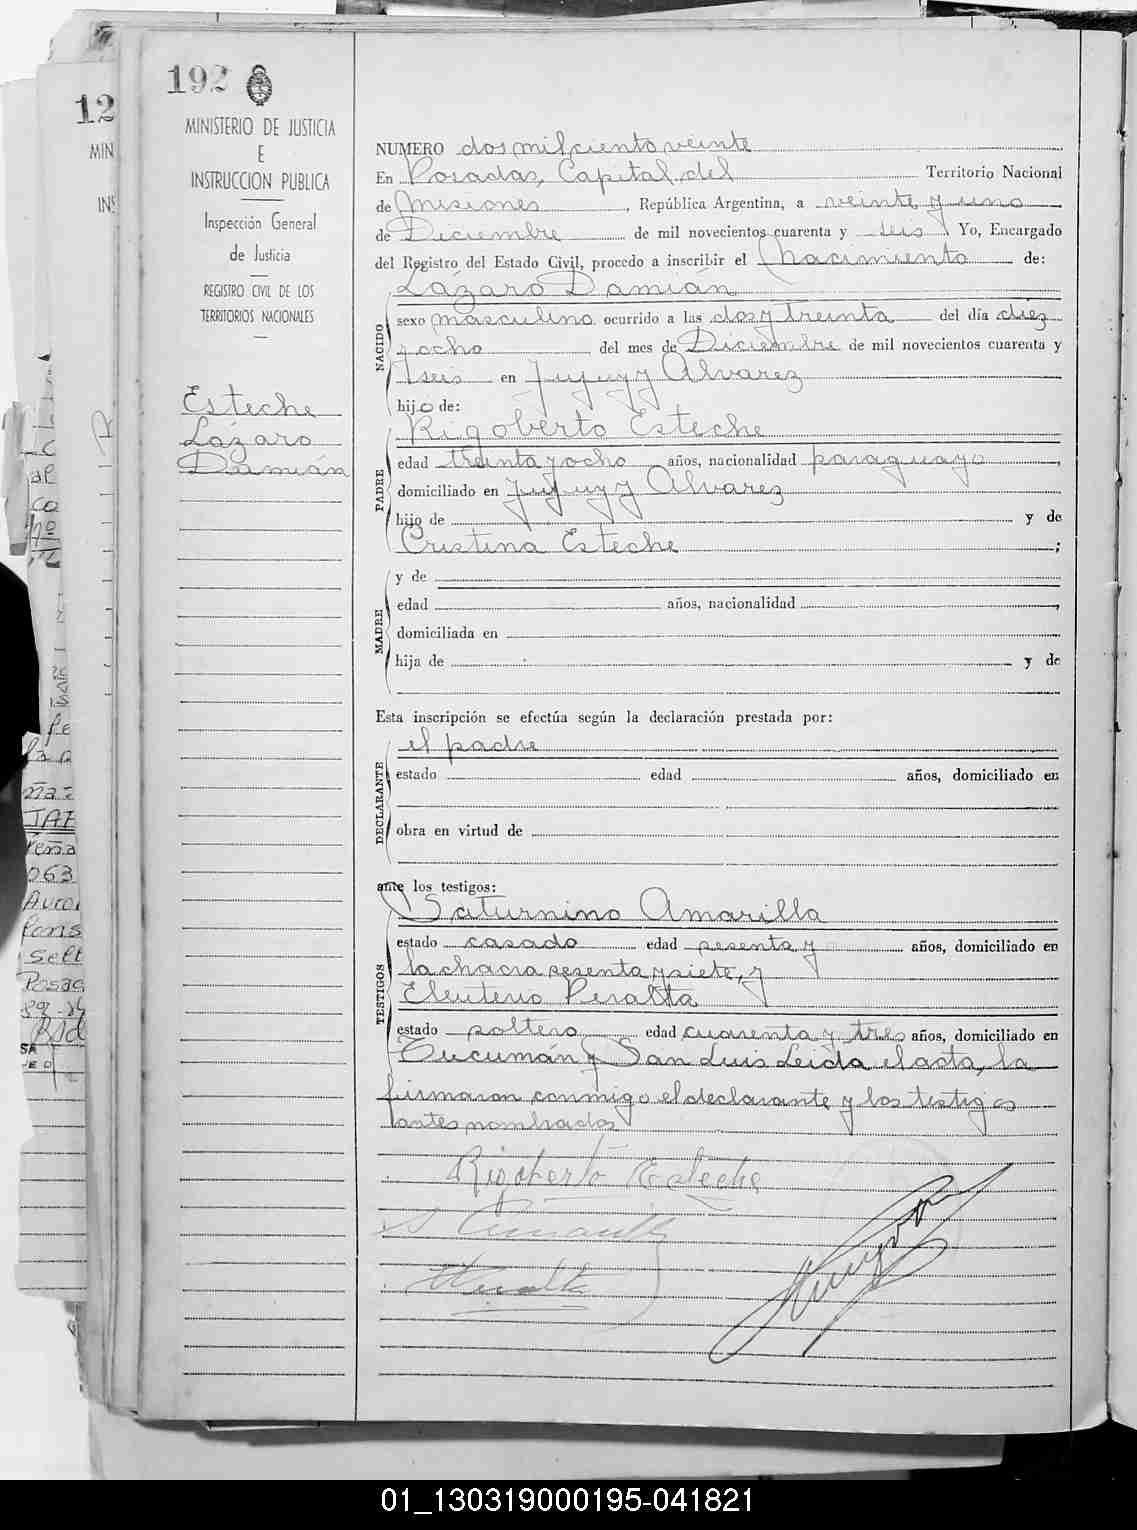 192
MINISTERIO DE JUSTICIA
E
INSTRUCCION PUBLICA
Inspección General
de Justicia
REGISTRO CIVIL DE LOS
TERRITORIOS NACIONALES
Esteche
Lázaro
Damián
12
MIN
INS
NUMERO dos mil ciento veinte
En Posadas, Capital del Territorio Nacional
de Misiones, República Argentina, a veinte y uno
de Diciembre de mil novecientos cuarenta y seis Yo, Encargado
del Registro del Estado Civil, procedo a inscribir el Nacimiento de:
Lázaro Damián
NACIDO
sexo masculino ocurrido a las dos y treinta del día diez
y ocho del mes de Diciembre de mil novecientos cuarenta y
seis en Jujuy y Alvarez
hijo de:
Rigoberto Esteche
PADRE
edad treinta y ocho años, nacionalidad paraguayo,
domiciliado en Jujuy y Alvarez
hijo de y de
Cristina Esteche;
MADRE
y de
edad años, nacionalidad,
domiciliada en
hija de y de
Esta inscripción se efectúa según la declaración prestada por:
el padre
DECLARANTE
estado edad años, domiciliado en
obra en virtud de
ante los testigos:
Saturnino Amarilla
TESTIGOS
estado casado edad sesenta y años, domiciliado en
la chacra sesenta y siete, y
Eleuterio Peralta
estado soltero edad cuarenta y tres años, domiciliado en
Tucumán y San Luis Leida el acta, la
firmaron conmigo el declarante y los testigos
antes nombrados
Rigoberto Esteche
S Amarilla
Peralta
01_130319000195-041821